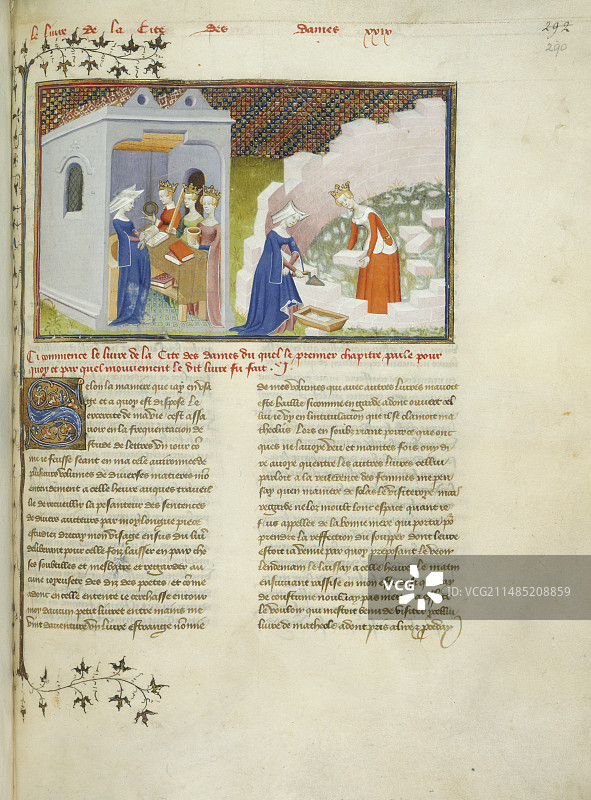 le livre de la Cite des dames xxix
292
290
Ci commence le livre de la Cite des dames du quel le premier chapitre parle pour
quoy et par quel mouvement le dit livre fu fait . I
Selon la maniere que iay en usa
ge et a quoy est dispose le
excercite de ma vie cest assa
voir en la frequentacion de
estude de lettres un iour co
me ie feusse seant en ma cele avironnee de
plusieurs volumes de diverses matieres mon
entendement a celle heure auques traveillie
de recueillir la pesanteur des sentences
de divers aucteurs par moy longue piece
estudies drecay mon visage ensus du livre
deliberant pour celle fois laisser en paix cho
ses soubtilles et mesbatre et regarder au
cune ioyeusete des dis des poetes et come
adont en celle entente ie cerchasse entour
moy daucun petit livret entre mains me
vint daventure un livre estrange non me
de mes volumes qui avec autres livres mavoit
este baillie si comme en garde adont ouvert cel
lui ie vy en lintitulacion que il se clamoit ma
theolus Lors en soubzriant pource que onc
ques ne lavoye veu et maintes fois ouy di
re avoye quentre les autres livres cellui
parloit a la reverence des femmes me pen
say quen maniere de solas le visiteroye mais
regarde ne loz moult long espace quant ie
fus appellee de la bonne mere qui porta po
prendre la reffection du soupper dont leure
estoit ia venue par quoy proposant le veoir
lendemain le laissay a celle heure le matin
ensuivant rassise en mon
de coustume noubliay pas
le vouloir qui mestoit venu de visiter cellui
livre de matheole adont pris a lire et proceday
VCG
VCG.COM
ID: VCG211485208859